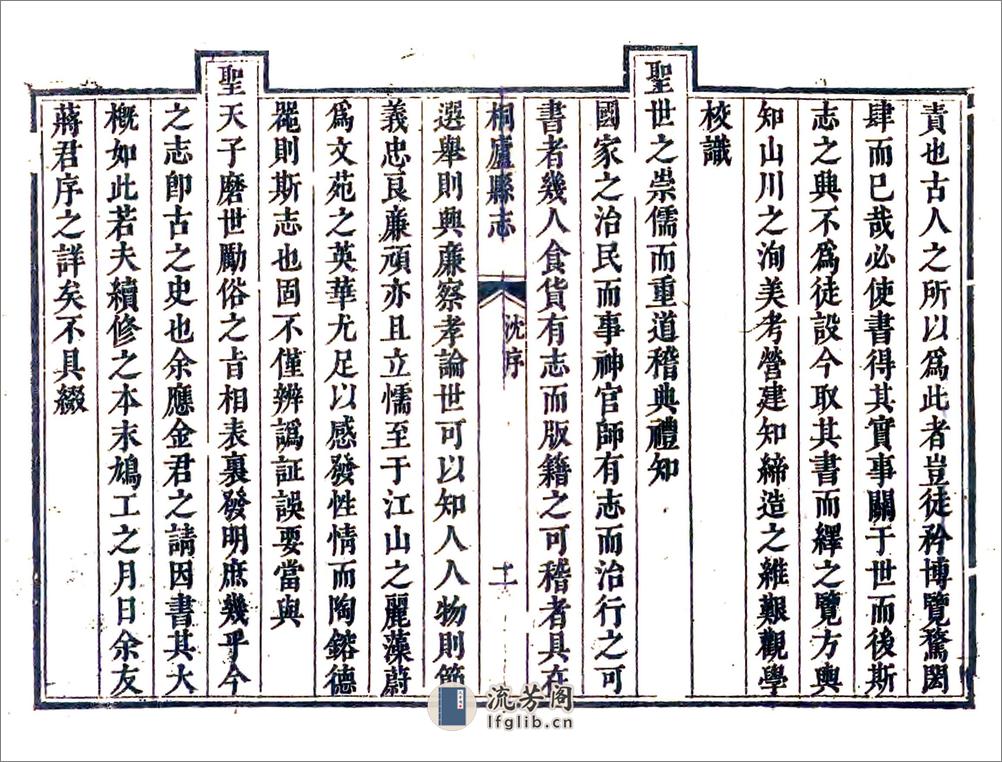 責也古人之所以爲此者豈徒矜博覽驚閎
肆而已哉必使書得其實事關于世而後斯
志之興不爲徒設今取其書而繹之覽方輿
知山川之洵美考營建知締造之維艱觀學
校識
聖世之崇儒而重道稽典禮知
國家之治民而事神官師有志而治行之可
書者幾人食貨有志而版籍之可稽者具在
桐廬縣志 沈序 十一
選舉則興廉察孝論世可以知人人物則節
義忠良廉頑亦且立懦至于江山之麗藻蔚
爲文苑之英華尤足以感發性情而陶鎔德
器則斯志也固不僅辨譌証誤要當與
聖天子磨世勵俗之旨相表裏發明庶幾乎今
之志卽古之史也余應金君之請因書其大
概如此若夫續修之本末鳩工之月日余友
蔣君序之詳矣不具綴
流芳阁
lfglib.cn